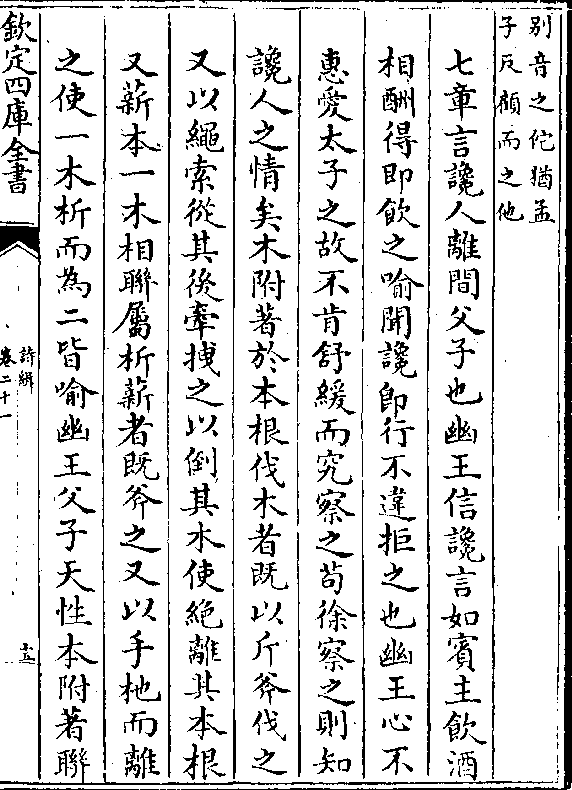 别音之佗猶孟
子反顧而之他
七章言讒人離間父子也幽王信讒言如賓主飲酒
相酬得即飲之喻聞讒即行不違拒之也幽王心不
惠愛太子之故不肯舒緩而究察之苟徐察之則知
讒人之情矣木附著於本根伐木者既以斤斧伐之
又以繩索從其後牽拽之以倒其木使絶離其本根
又薪本一木相聯屬析薪者既斧之又以手杝而離
之使一木析而為二皆喻幽王父子天性本附著聯
欽定四庫全書
詩緝
卷二十一
十五